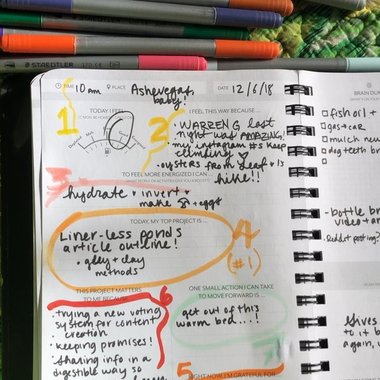 STAEDTLER
TIME 10 am PLACE Ashevegas, baby! DATE 12/6/18
TODAY I FEEL
1
I FEEL THIS WAY BECAUSE ...
2
WARREN G last
night was AMAZING,
my instagram #s keep
climbing
• oysters from Leaf + 13
hike!!
3
TO FEEL MORE ENERGIZED I CAN
hydrate + invert +
make egg
TODAY, MY TOP PROJECT IS ...
Liner-less ponds
article outline!
• gley + clay
methods
4
(#1)
THIS PROJECT MATTERS
TO ME BECAUSE
6
• trying a new voting
system for content
creation
• keeping promises!
• sharing info in a
digestible way so
ONE SMALL ACTION I CAN
TAKE TO MOVE FORWARD IS ...
get out of this
warm bed...!
7
5
RIGHT NOW I'M GRATEFUL FOR
BRAIN DU
fish oil +
gas + car
mulch new
dog teeth br
- bottle br
video + ar
- Reddit posting?
gives
to it b
again, v